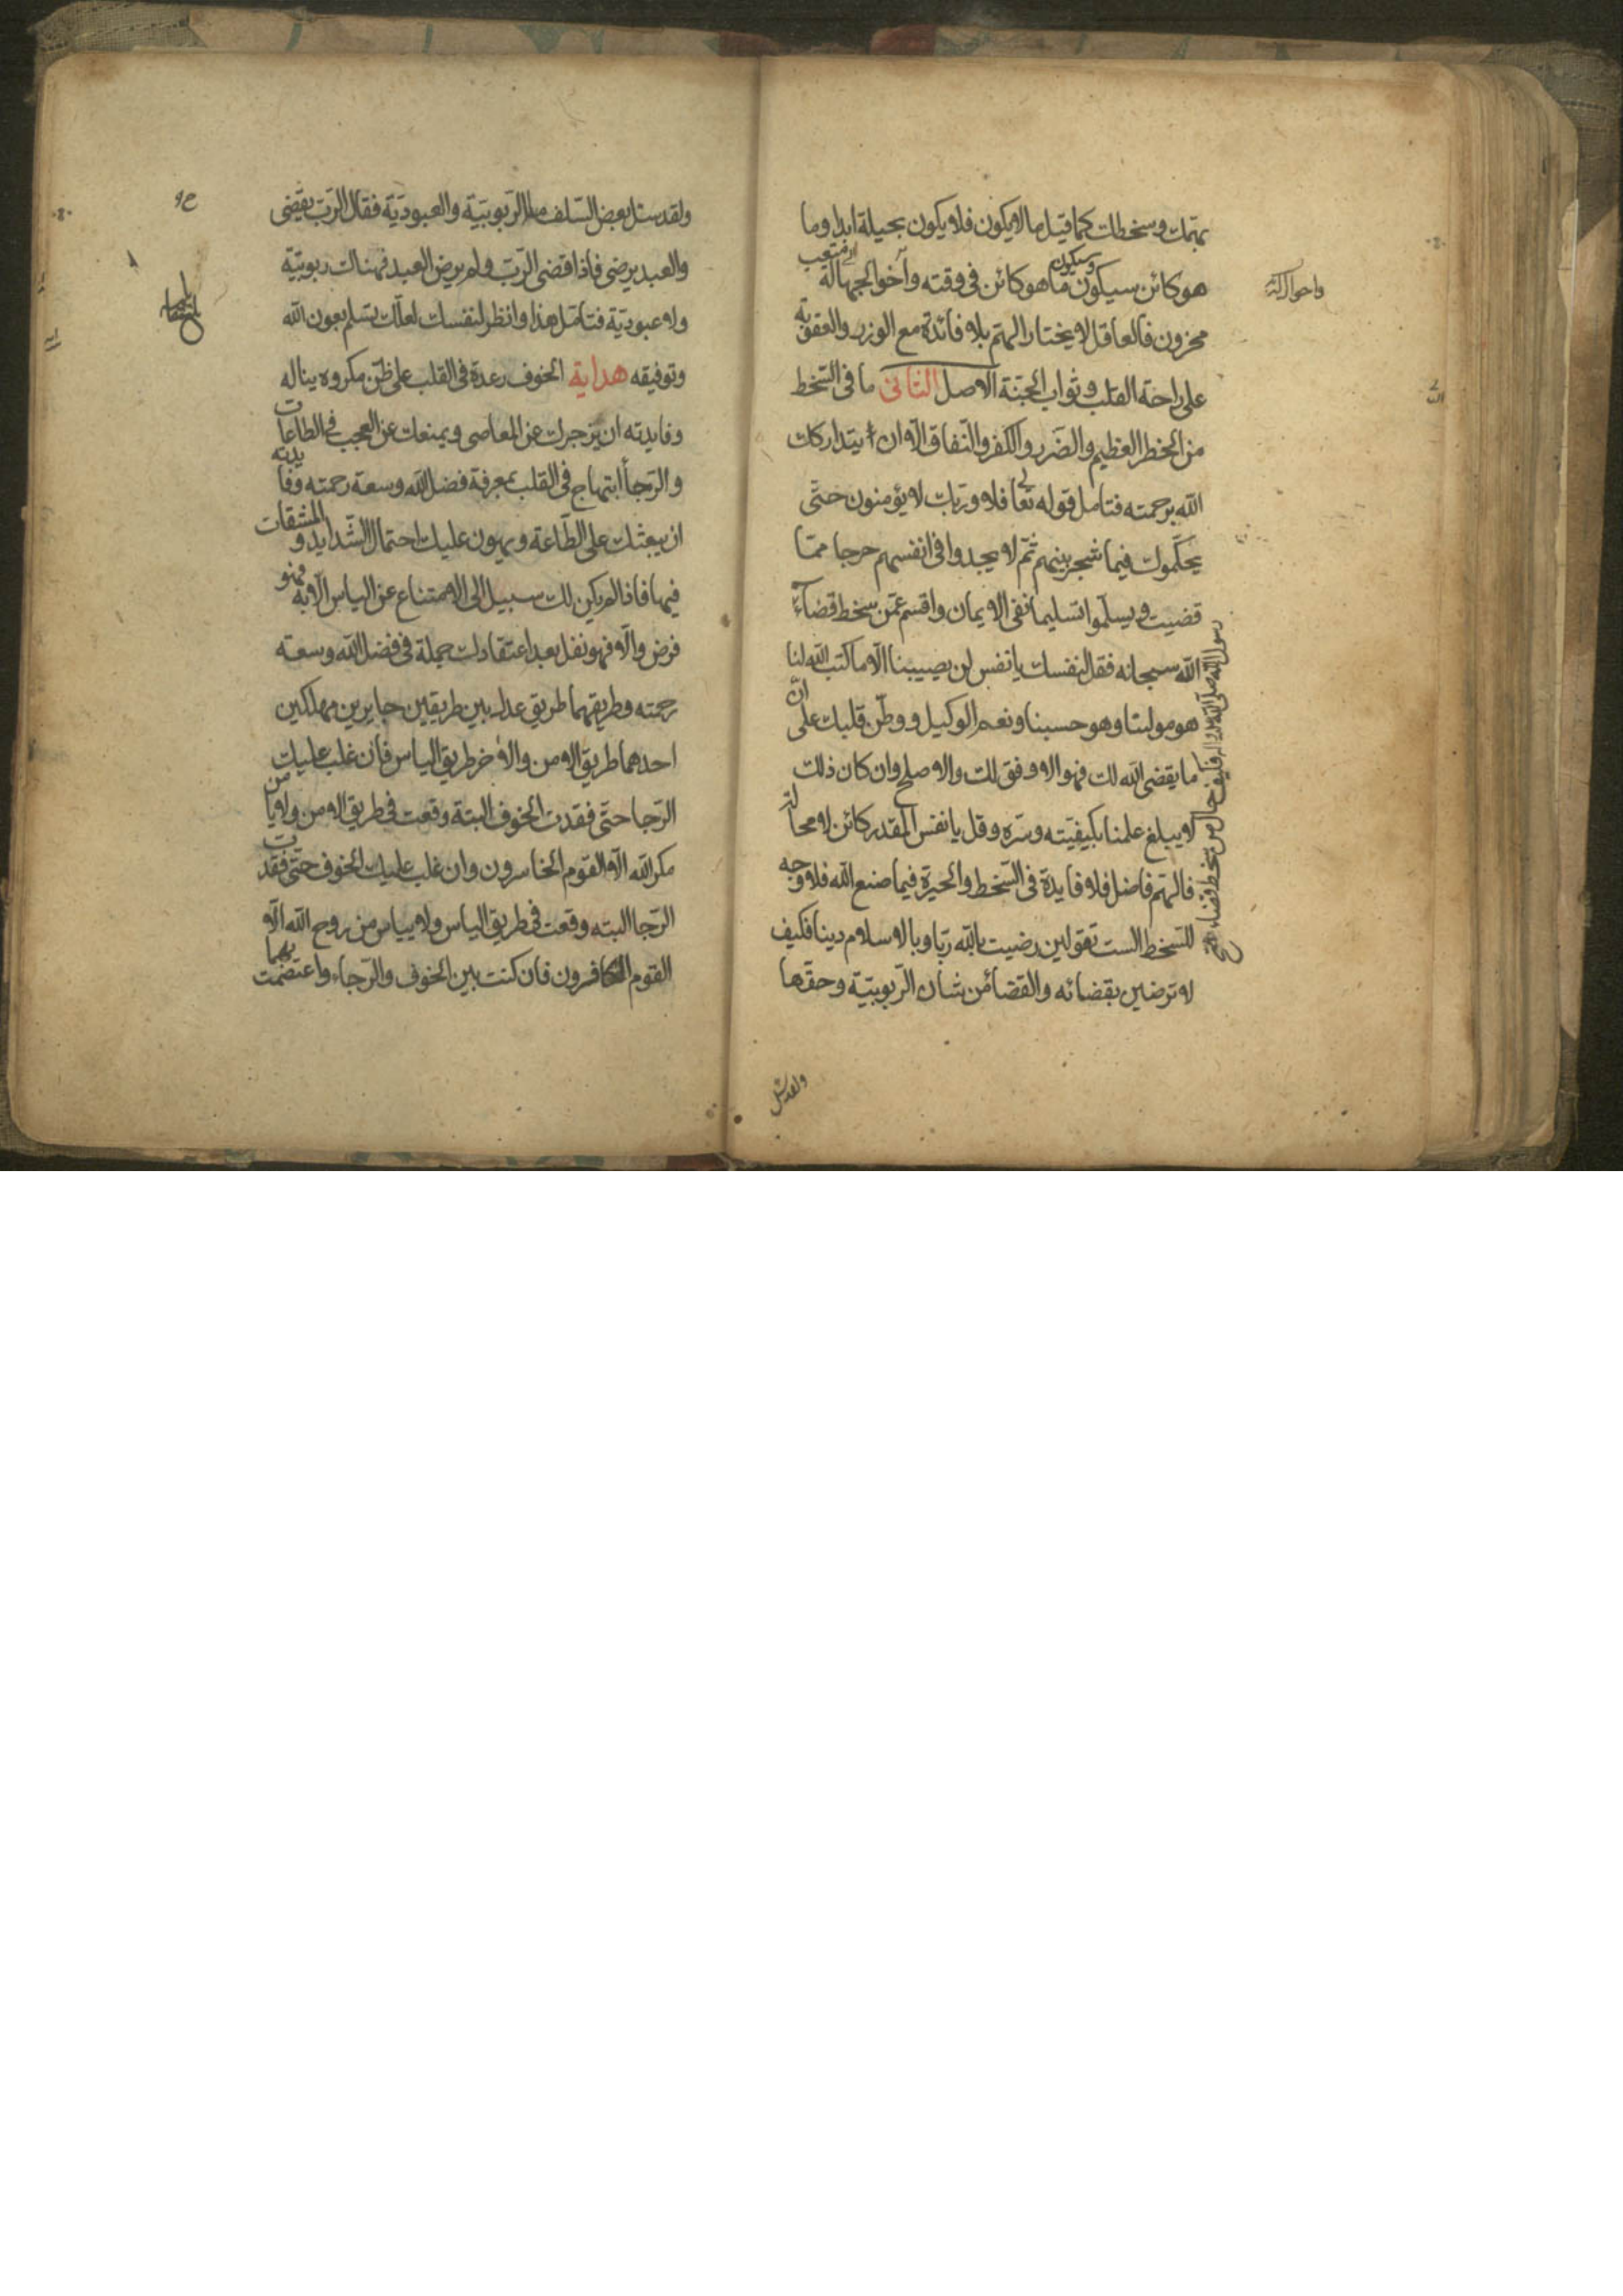 بهمك وسخطك كما قيل ما لا يكون فلا يكون بحيلة ابدا وما
هو كائن سيكون وسيكون ما هو كائن في وقته وأخو الجهالة متعب
محزون فالعاقل لا يختار الهم بلا فائدة مع الوزر والعقوبة
على راحة القلب وثواب الجنة الاصل الثاني ما في السخط
من الخطر العظيم والضرر والكفر والنفاق الا ان يتداركك
الله برحمته فتامل قوله تعالى فلا وربك لا يؤمنون حتى
يحكموك فيما شجر بينهم ثم لا يجدوا في انفسهم حرجا مما
قضيت ويسلموا تسليما نفى الايمان واقسم عمن سخط قضآء
رسول الله صلى الله فكيف حال من سخط قضاء
الله سبحانه فقل لنفسك يا نفس لن يصيبنا الا ما كتب الله لنا
هو مولينا وهو حسبنا ونعم الوكيل ووطن قلبك على ان
ما يقضى الله لك فهو الاوفق لك والاصلح وان كان ذلك
لا يبلغ علمنا بكيفيته وسره وقل يا نفس المقدر كائن لا محالة
فالهم فاضل فلا فايدة في السخط والحيرة فيما صنع الله فلا وجه
للسخط الست تقولين رضيت بالله ربا وبالاسلام دينا فكيف
لا ترضين بقضائه والقضا من شان الربوبية وحقها
ولقد سئل
ولقد سئل بعض السلف ما الربوبية والعبودية فقال الرب يقضى
والعبد يرضى فاذا قضى الرب ولم يرض العبد فهناك ربوبية
ولا عبودية فتامل هذا وانظر لنفسك لعلك تسلم بعون الله
وتوفيقه هداية الخوف رعدة في القلب على ظن مكروه يناله
وفايدته ان يزجرك عن المعاصى ويمنعك عن العجب في الطاعات
والرجأ ابتهاج في القلب بمعرفة فضل الله وسعة رحمته وفايدته
ان يبعثك على الطاعة ويهون عليك احتمال الشدايد والمشقات
فيها فاذا لم يكن لك سبيل الى الامتناع عن الياس الا به فهو
فرض والا فهو نفل بعد اعتقادك جملة في فضل الله وسعة
رحمته وطريقهما طريق عدل بين طريقين جايرين مهلكين
احدهما طريق الامن والاخر طريق الياس فان غلب عليك
الرجا حتى فقدت الخوف البتة وقعت في طريق الامن ولا يامن
مكر الله الا القوم الخاسرون وان غلب عليك الخوف حتى فقدت
الرجا البته وقعت في طريق الياس ولا يياس من روح الله الا
القوم الكافرون فان كنت بين الخوف والرجاء واعتصمت بهما